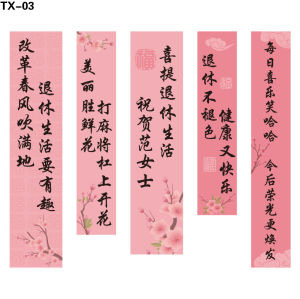 TX-03
改革春风吹满地
退休生活要有趣
美丽胜鲜花
打麻将杠上开花
喜提退休生活
祝贺范女士
退休不褪色
健康又快乐
每日喜乐笑哈哈 今后荣光更焕发